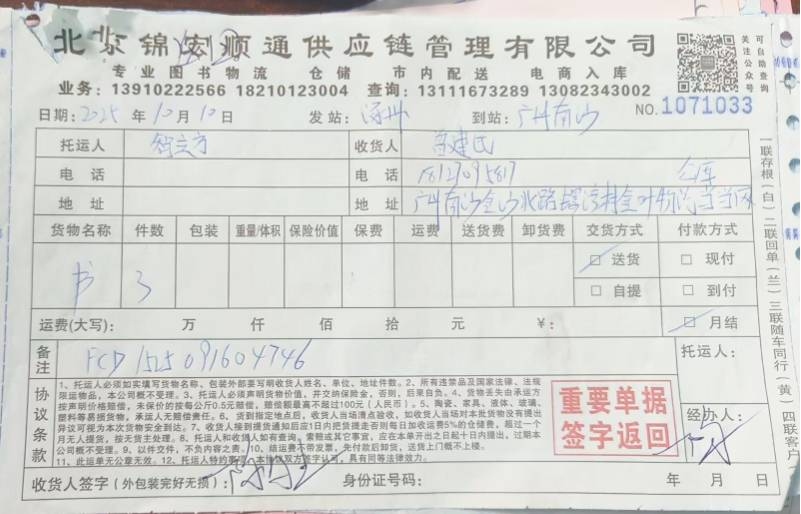 北京锦宏顺通供应链管理有限公司
专业图书物流 仓储 市内配送 电商入库
业务：13910222566 18210123004 查询：13111673289 13082343002
关注公众号
可自助查询
日期：2025年10月10日 发站：涿州 到站：广州南沙 NO.1071033
托运人 智立方 收货人 建民
电话 电话 仓库
地址 地址 广州南沙
货物名称 件数 包装 重量/体积 保险价值 保费 运费 送货费 卸货费 交货方式 付款方式
书 3 □ 送货 □ 现付
□ 自提 □ 到付
运费(大写)： 万 仟 佰 拾 元 ¥： □ 月结
备注 FCD1525091604746 托运人：
协议条款
1、托运人必须如实填写货物名称、包装外部要写明收货人姓名、单位、地址件数。2、所有违禁品及国家法律、法规
限运物品，本公司概不受理。3、托运人必须声明货物价值，并交纳保险金，否则，后果自负。4、货物丢失由承运方
按声明价格赔偿，未保价的按每公斤0.5元赔偿，赔偿额最高不超过100元（人民币）。5、陶瓷、家具、液体、玻璃、
塑料等易损货物，承运人无赔偿责任。6、货到指定地点后，收货人当场清点验收，如收货人当场对本批货物没有提出
异议可视为本次货物安全到达。7、收货人接到提货通知后应1日内把货提走否则每日加收运费5%的仓储费，超过一个
月无人提货，按无货主处理。8、托运人和收货人如有查询、索赔或其它事宜，应在本单开出之日起十日内提出，过期本
公司概不受理。9、以件交件，不负内容之责。10、结运费不带发票，先付款后卸货，送货上门概不上楼。
11、此运单无公章无效。12、托运人特约事项，本协议双方签字认可，具有同等法律效力。
重要单据
签字返回
经办人：
收货人签字（外包装完好无损）： 身份证号码： 年 月 日
一联存根（白）二联回单（兰）三联随车同行（黄）四联客户